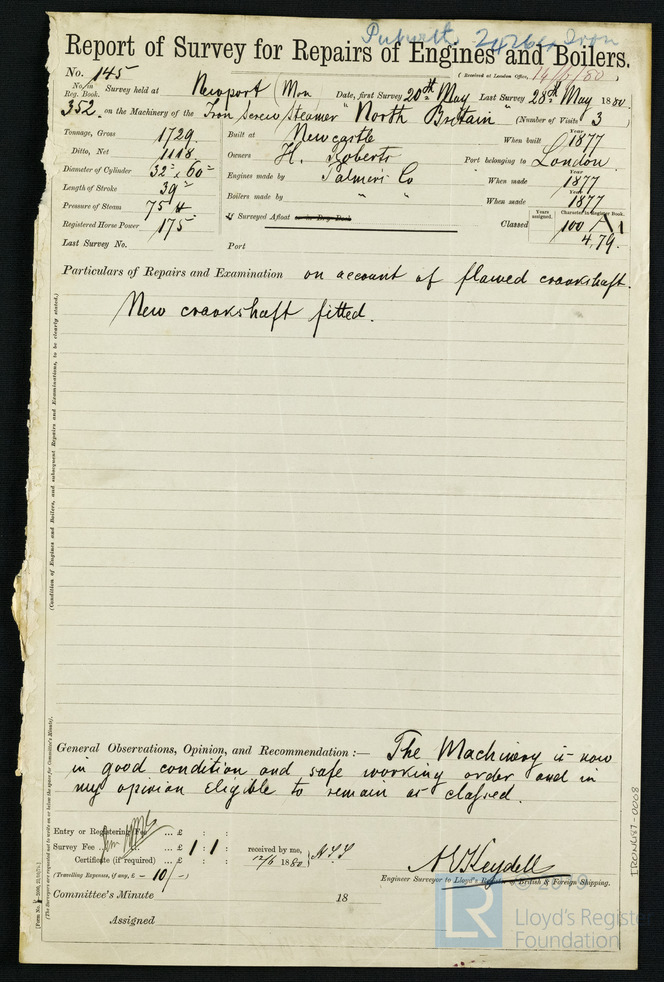 Report of Survey for Repairs of Engines and Boilers.
No. 145
(Received at London Office, 14/6/80)
No. in Reg. Book. Survey held at Newport (Mon Date, first Survey 20th May Last Survey 28th May 1880.
352 on the Machinery of the Iron Screw Steamer "North Britain" (Number of Visits 3)
Tonnage, Gross 1729
Built at Newcastle When built Year 1877
Ditto, Net 1118
Owners H. Roberts Port belonging to London
Diameter of Cylinder 32" x 60"
Engines made by Palmers Co When made Year 1877
Length of Stroke 39"
Boilers made by " " When made Year 1877
Pressure of Steam 75
If Surveyed Afloat or in Dry Dock
Years assigned. Character in Register Book.
Classed 100 A 1
4.79.
Registered Horse Power 175
Last Survey No. Port
Particulars of Repairs and Examination on account of flawed crankshaft.
New crankshaft fitted.
(Condition of Engines and Boilers, and subsequent Repairs and Examinations, to be clearly stated.)
General Observations, Opinion, and Recommendation:— The Machinery is now
in good condition and safe working order and in
my opinion Eligible to remain as classed.
Entry or Registering Fee ... £ : :
Survey Fee ... £ 1 : 1 :
received by me,
Certificate (if required) ... £ : :
12/6 1880
(Travelling Expenses, if any, £ - 10/-)
A Heydell
Engineer Surveyor to Lloyd's Register of British & Foreign Shipping.
Committee's Minute 18
Assigned
(The Surveyors are requested not to write on or below the space for Committee's Minute).
IRON487-0008
© 2019
LR
Lloyd's Register
Foundation